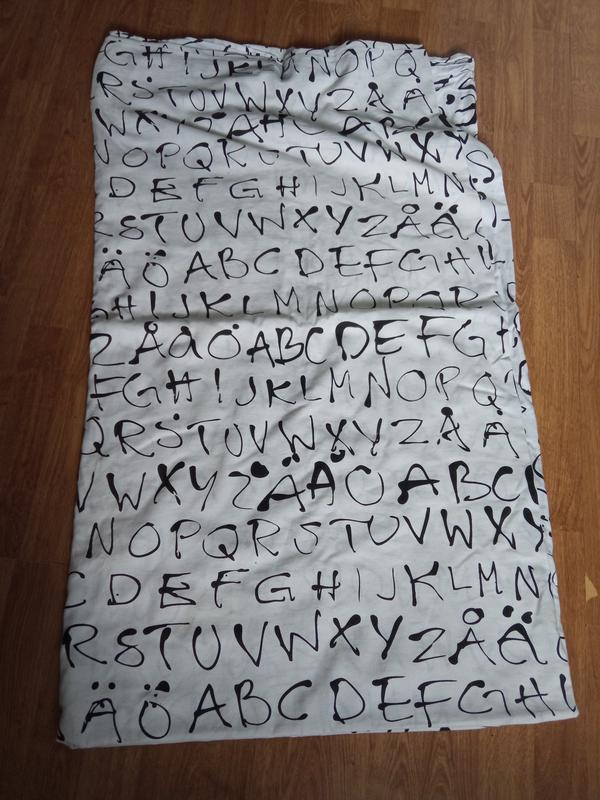 GHIJKLMNOPQ
RSTUVWXYZÅÄ
WXYZ
NOPQRSTUVWXY
DEFGHIJKLMN
RSTUVWXYZÅÄ
ÄÖ ABCDEFGH
HIJKLMNOPQR
ZÅÄÖABCDEFGH
FGHIJKLMNOPQ
QRSTUVWXYZÅÄ
VWXYZÅÄÖABC
NOPQRSTUVWXY
CDEFGHIJKLMN
RSTUVWXYZÅÄ
ÄÖ ABCDEFGH